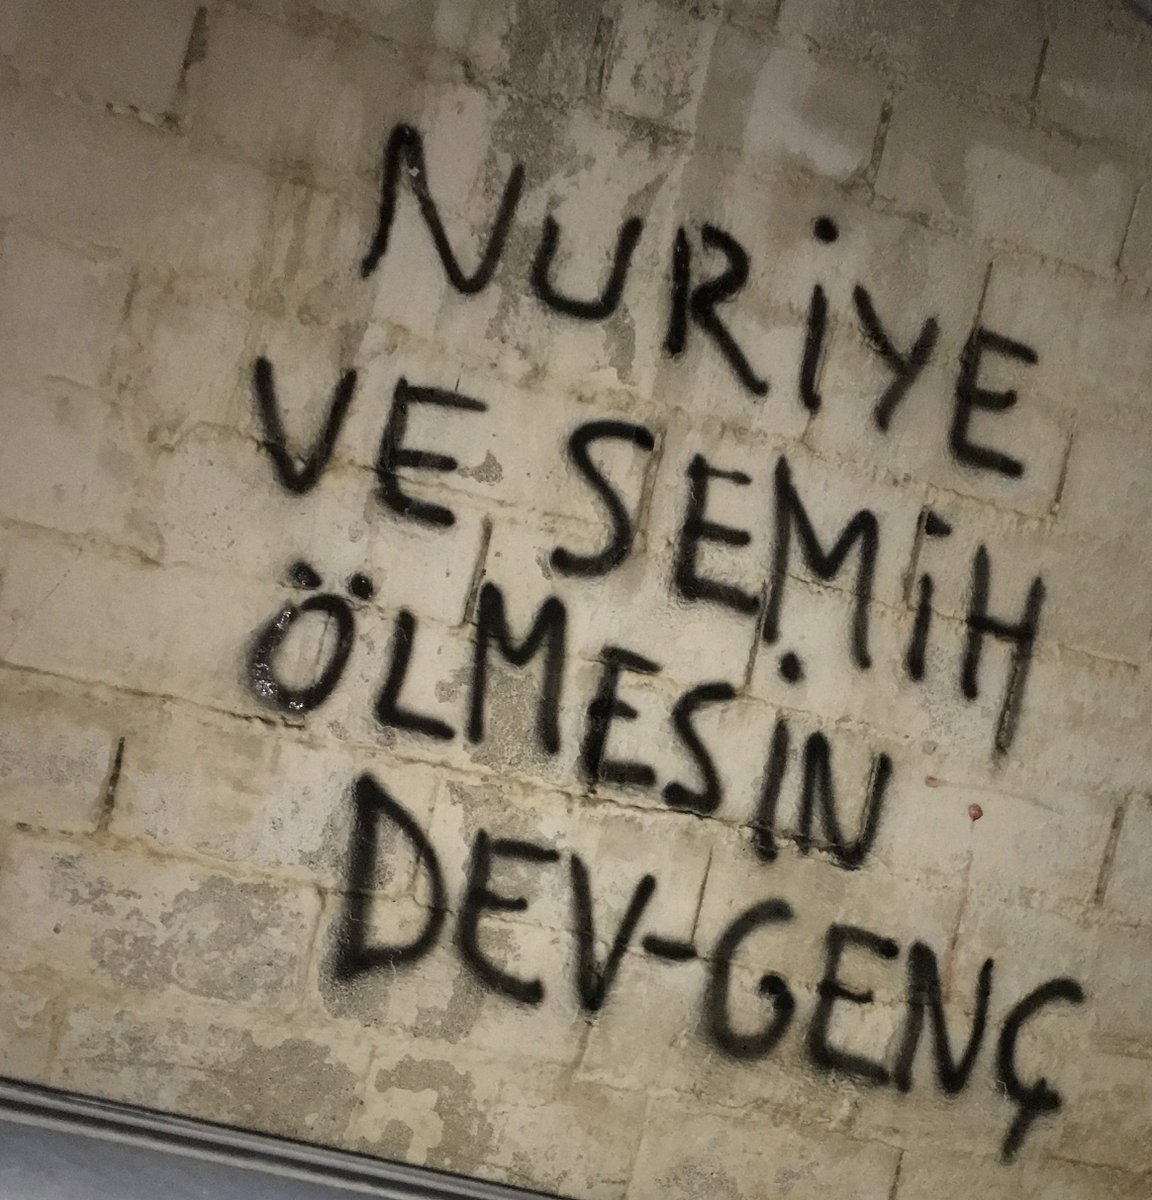 NURİYE
VE SEMİH
ÖLMESİN
DEV-GENÇ